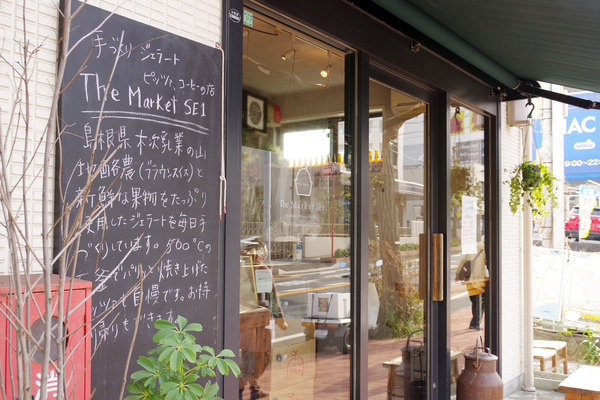 手づくり ジェラート
ピッツァ、コーヒーの店
The Market SE1
島根県木次乳業の山
地酪農(ブラウンスイス)と
新鮮な果物をたっぷり
使用したジェラートを毎日手
づくりしています。500℃の
釜でパリッと焼き上げた
ピッツァも自慢です。お持
帰りもできます。
The Market SE1
消
AC
9:00~22: